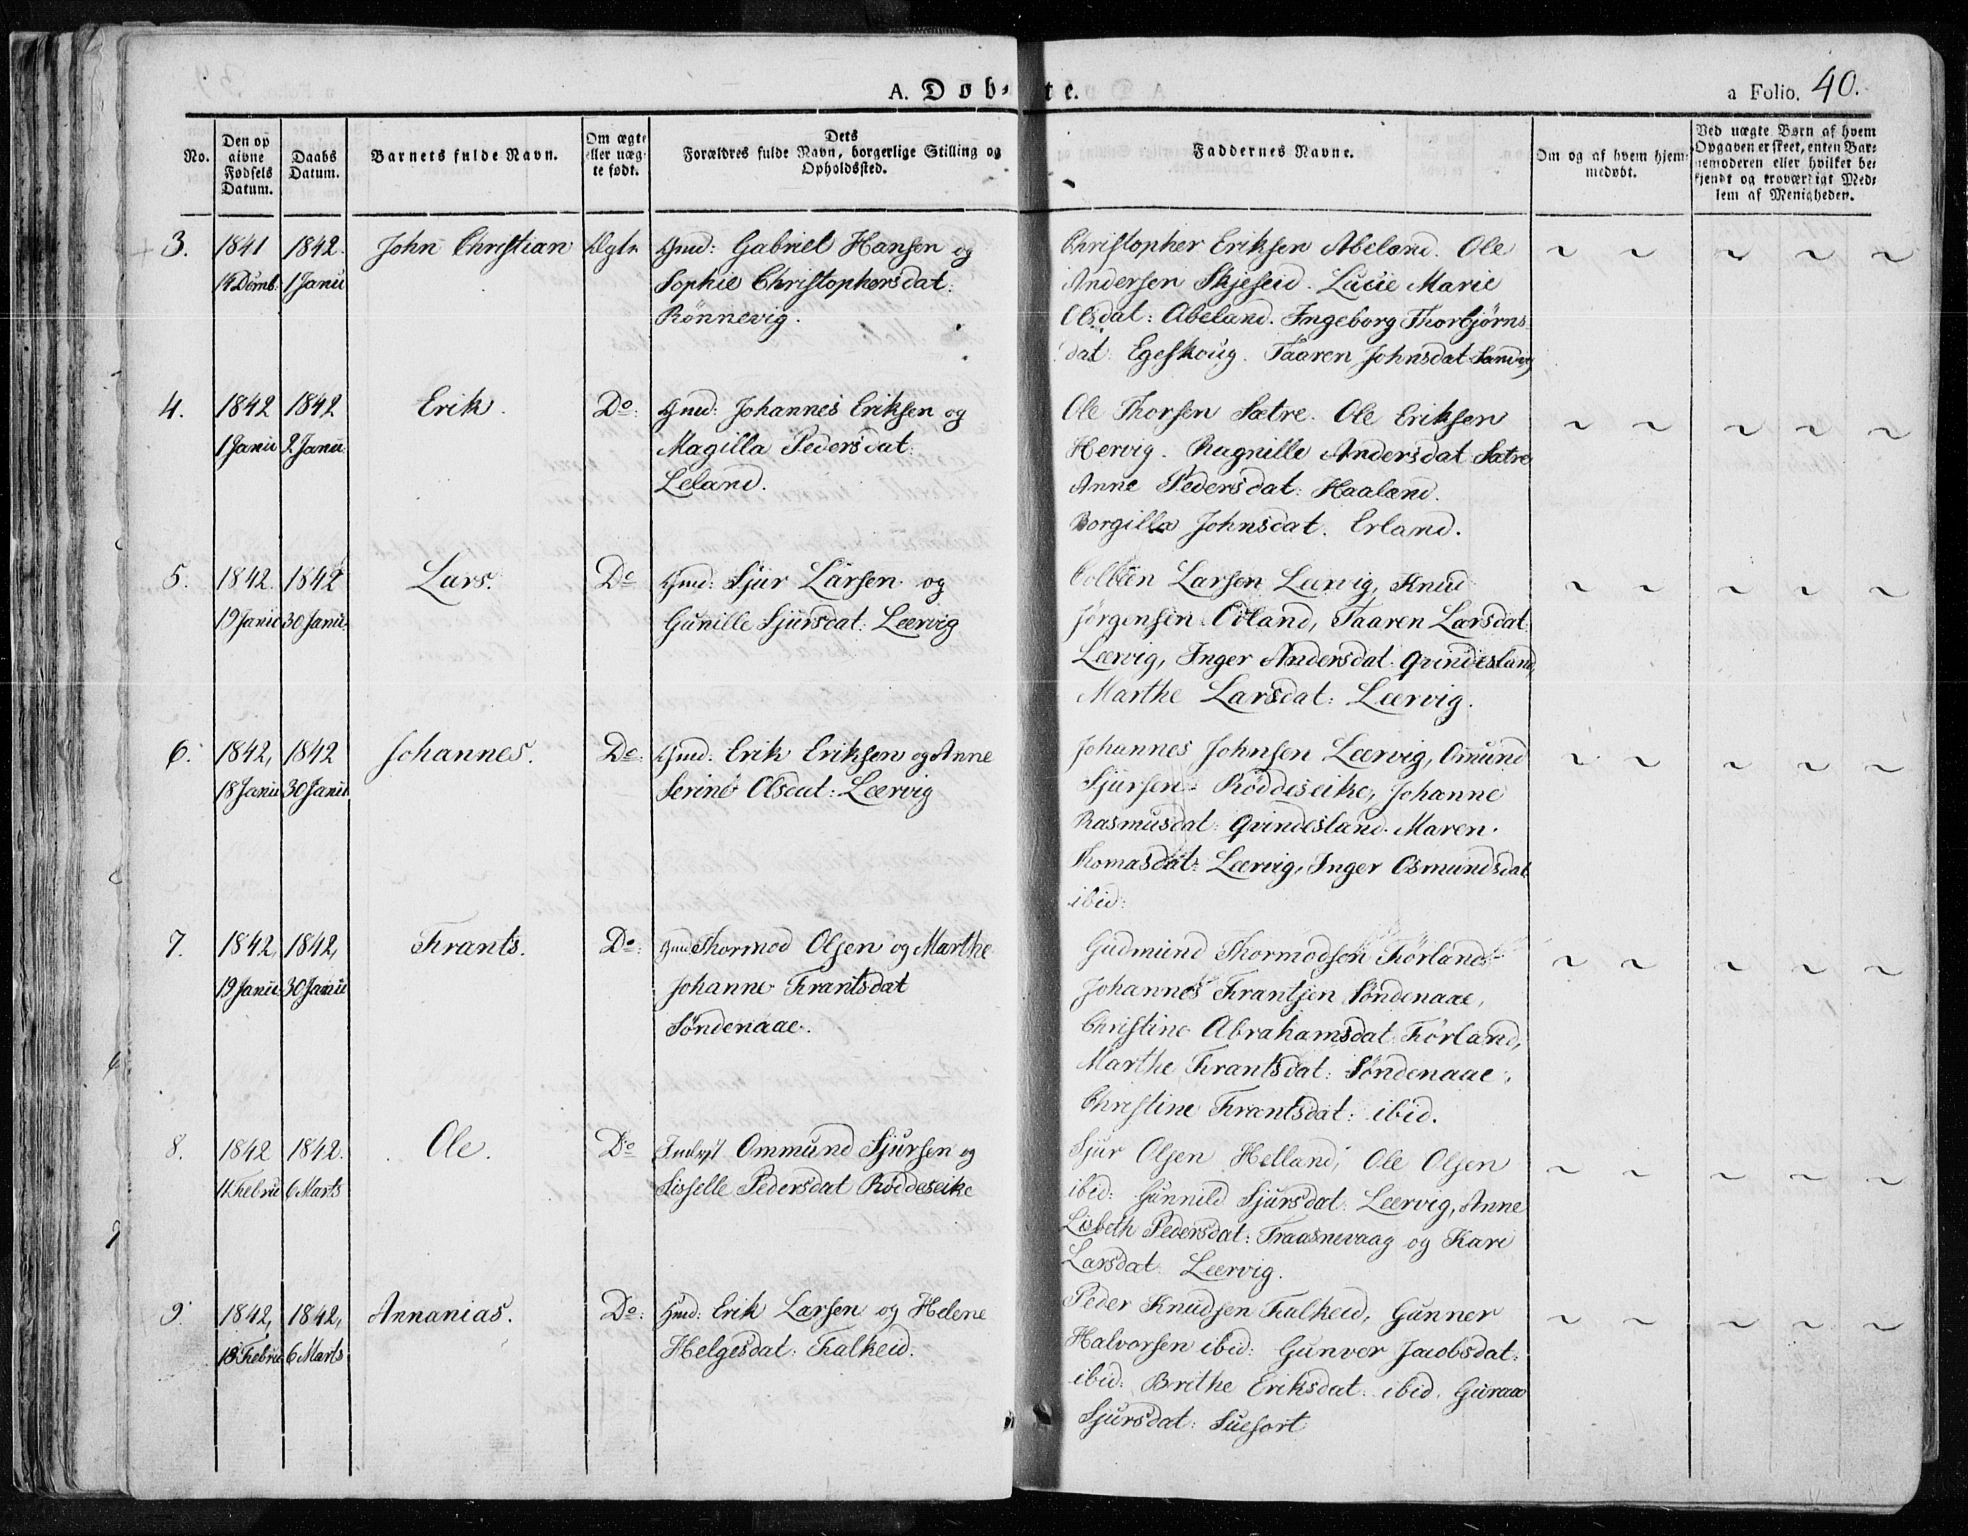 A. Døbte.
a Folio. 40.
No.
Den op
givne
Fødsels
Datum.
Daabs
Datum.
Barnets fulde Navn.
Om ægte
eller uæg-
te født.
Dets
Forældres fulde Navn, borgerlige Stilling og
Opholdssted.
Faddernes Navne.
Om og af hvem hjem-
medøbt.
Ved uægte Børn af hvem
Opgaven er skeet, enten Bar-
nemoderen eller hvilket be-
kjendt og troværdigt Med-
lem af Menigheden.
3. 1841 1842. John Christian Ægte Gmd: Gabriel Hansen og
1 Janu Sophie Christophersdat:
Rönnevig.
Christopher Eriksen Abeland. Ole
Andersen Skjeseid. Lucie Marie
Olsdat: Abeland. Ingeborg Thorbjørns
dat. Egeskoug. Taaren Johnsdat Sandvig
4. 1842 1842 Erik. Do: Gmd: Johannes Eriksen og
1 Janu 2 Janu Magilla Pedersdat:
Leland.
Ole Thorsen Sætre. Ole Eriksen
Hervig. Ragnille Andersdat Sætre
Anne Pedersdat: Haaland.
Borgilla Johnsdat. Erland.
5. 1842. 1842 Lars. Do Gmd: Sjur Larsen og
19 Janu 30 Janu. Gunille Sjursdat: Leervig
Colbeen Larsen Leervig, Knud
Jørgensen Odland, Taaren Larsdat:
Leervig, Inger Andersdat. Qvindesland,
Marthe Larsdat: Leervig.
6. 1842, 1842 Johannes. Do: Gmd: Erik Eriksen og Anne
18 Janu 30 Janu Serine Olsdat: Leervig
Johannes Johnsen Leervig, Omund
Sjursen Röddeseike, Johanne
Rasmusdat: Qvindesland. Maren
Thomasdat: Leervig, Inger Osmundsdat
ibid:
7. 1842, 1842, Frants. Do: Gmd Thormod Olsen og Marthe
19 Janu 30 Janu Johanne Frantsdat
Söndenaae.
Gudmund Thormodsen Förland
Johannes Frantsen Söndenaae,
Christine Abrahamsdat Förland,
Marthe Frantsdat: Söndenaae,
Christine Frantsdat: ibid.
8. 1842 1842. Ole. Do Ommund Sjursen og
11 Febru 6 Marts Sisselle Pedersdat Röddeseike
Sjur Olsen Helland, Ole Olsen
ibid: Gunnild Sjursdat: Leervig, Anne
Lisbeth Pedersdat: Fraasnevaag og Kari
Larsdat Leervig.
9. 1842, 1842, Annanias. Do: Gmd: Erik Larsen og Helene
18 Febru 6 Marts Helgesdat: Falkeid.
Peder Knudsen Falkeid, Gunner
Halvorsen ibid: Gunver Jacobsdat:
ibid: Brithe Eriksdat: ibid. Guraa
Sjursdat: